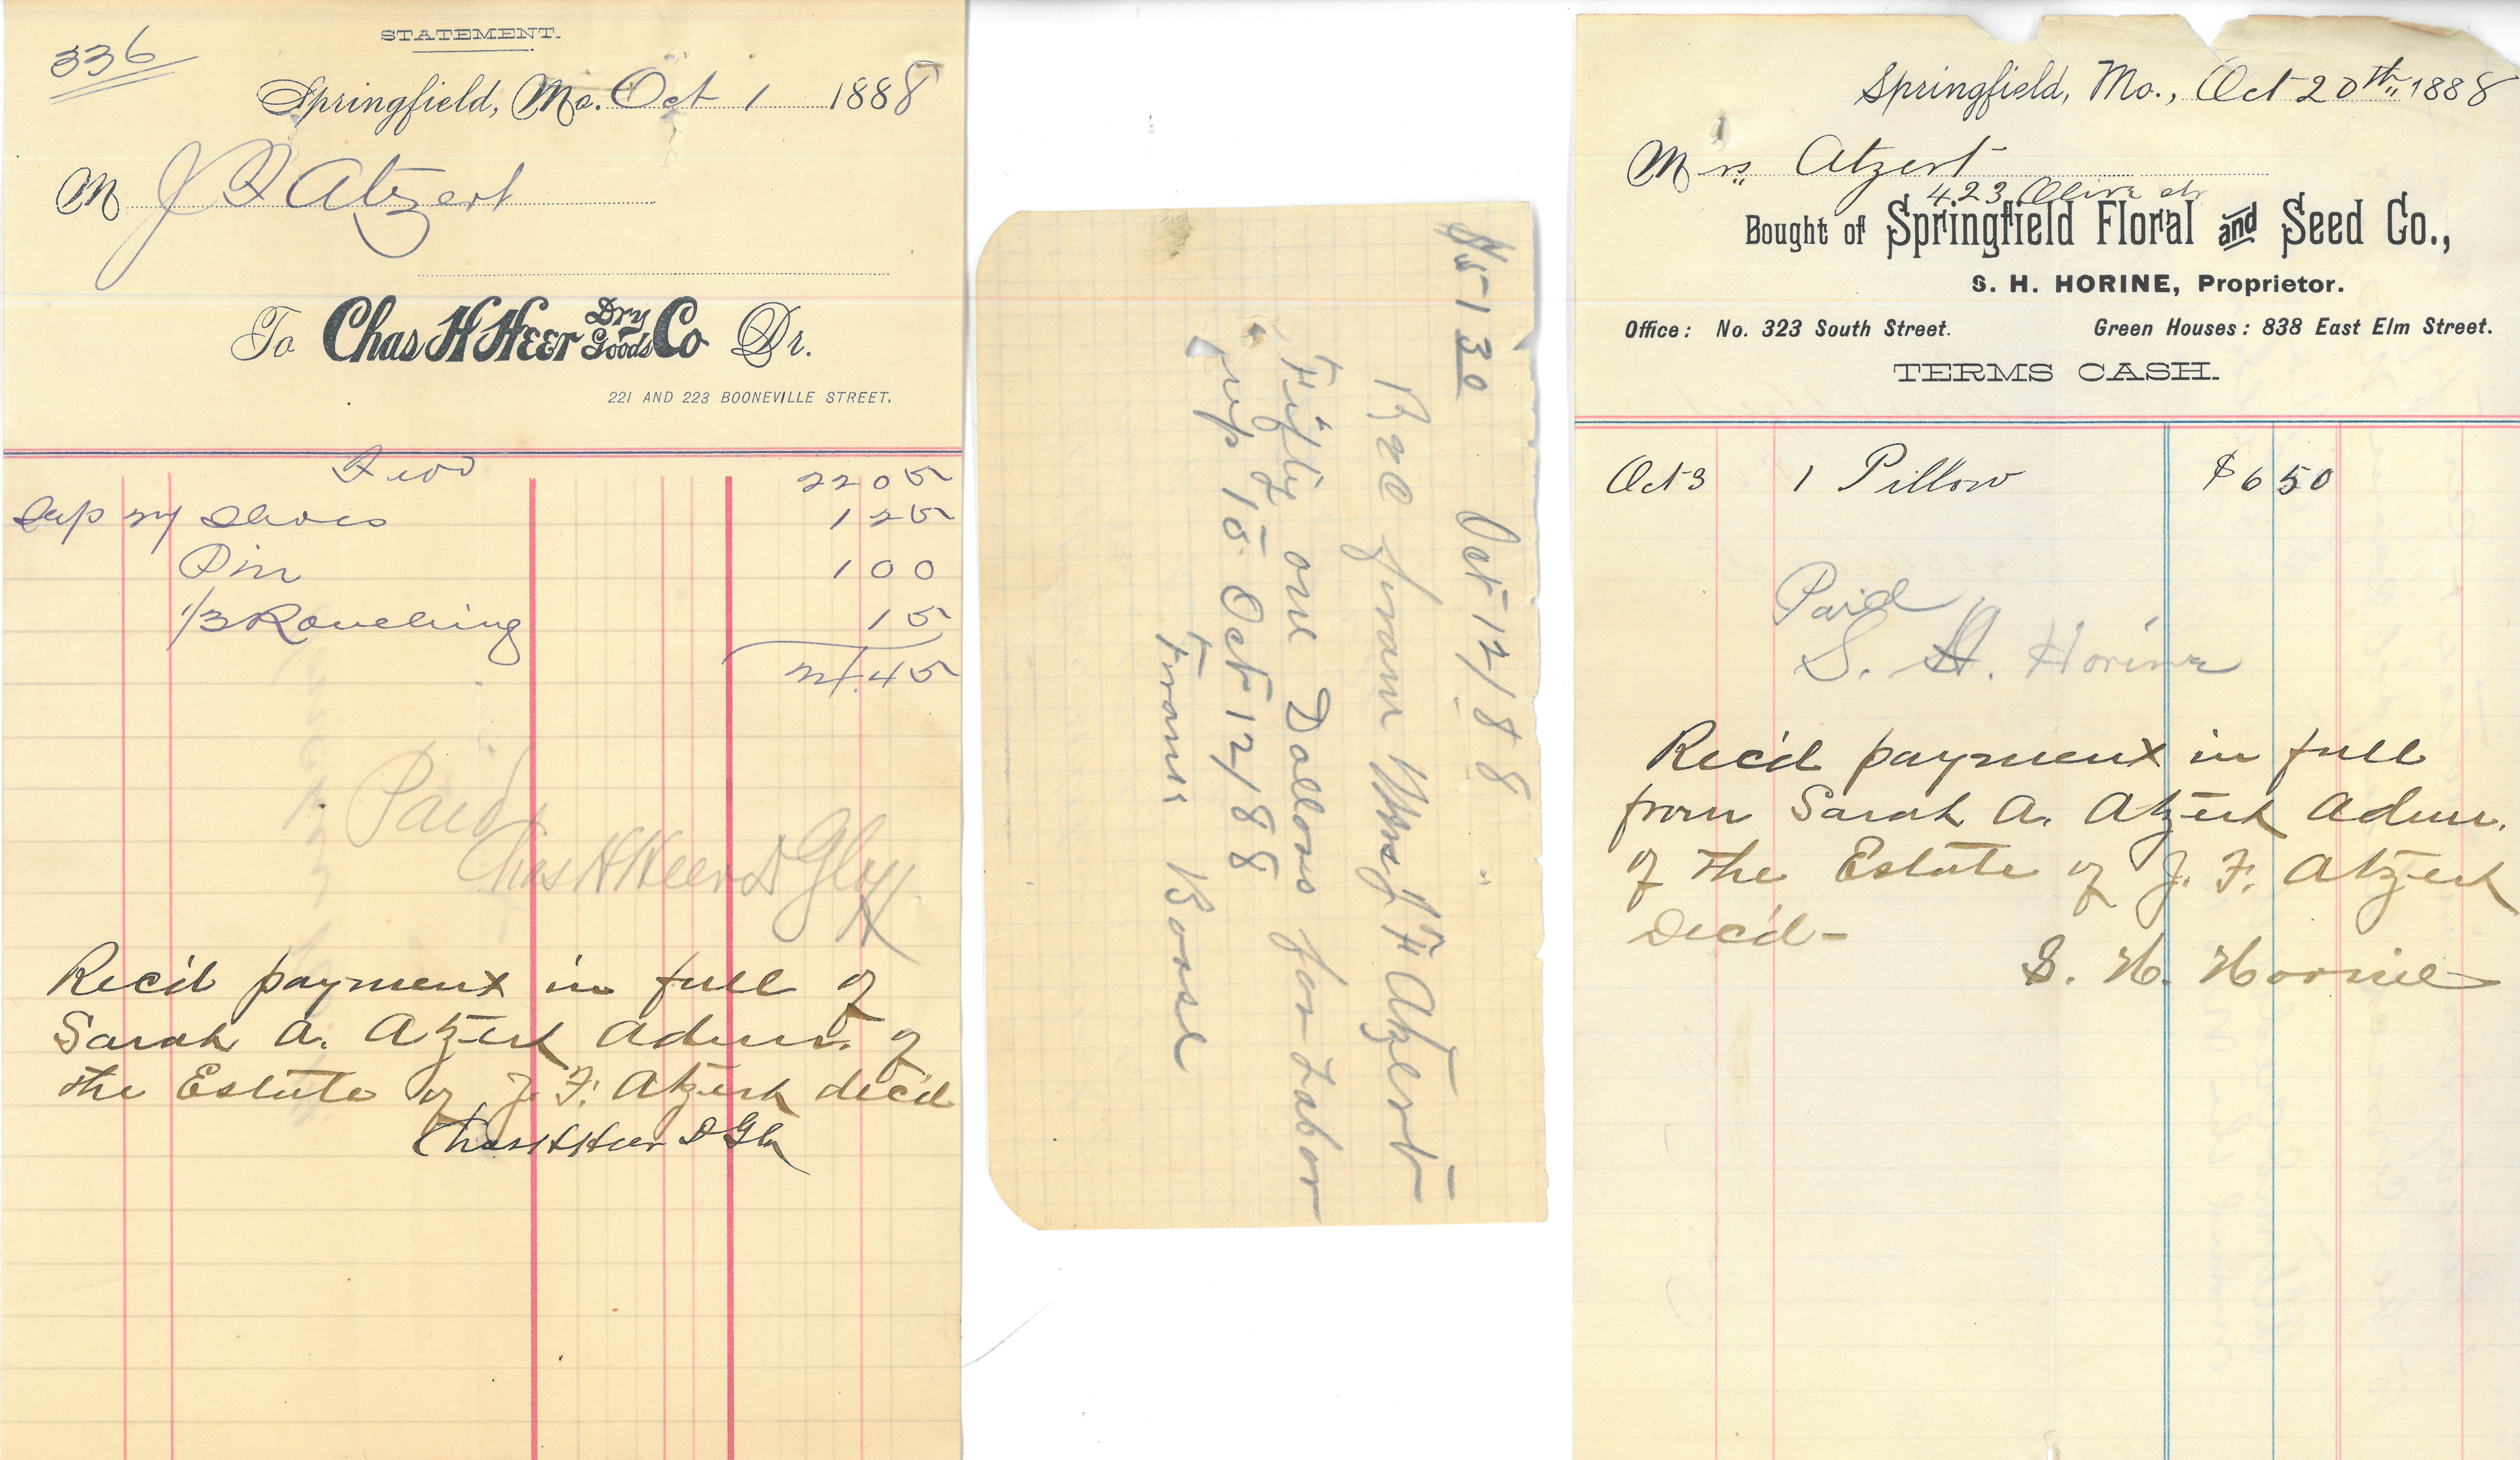 336
STATEMENT.
Springfield, Mo. Oct 1 1888
M J F Atzert
To Chas H Heer Dry Goods Co Dr.
221 AND 223 BOONEVILLE STREET.
2205
Sep 24 Shoes 125
Pin 100
1/3 Rouching 15
24.45
Paid
Chas H Heer D G Co
Rec'd payment in full of
Sarah A. Atzert Admr. of
the Estate of J. F. Atzert dec'd
Chas H Heer D G Co
$51 30 Oct 12/88
Rec from Mrs J F Atzert
Fifty one Dollors for Labor
up to Oct 12/88
Frank
Springfield, Mo., Oct 20th 1888
Mrs Atzert
423 Olive St
Bought of Springfield Floral and Seed Co.,
S. H. HORINE, Proprietor.
Office: No. 323 South Street. Green Houses: 838 East Elm Street.
TERMS CASH.
Oct 3 1 Pillow $6 50
Paid
S. H. Horine
Rec'd payment in full
from Sarah A. Atzert Admr.
of the Estate of J. F. Atzert
Dec'd-
S. H. Horine